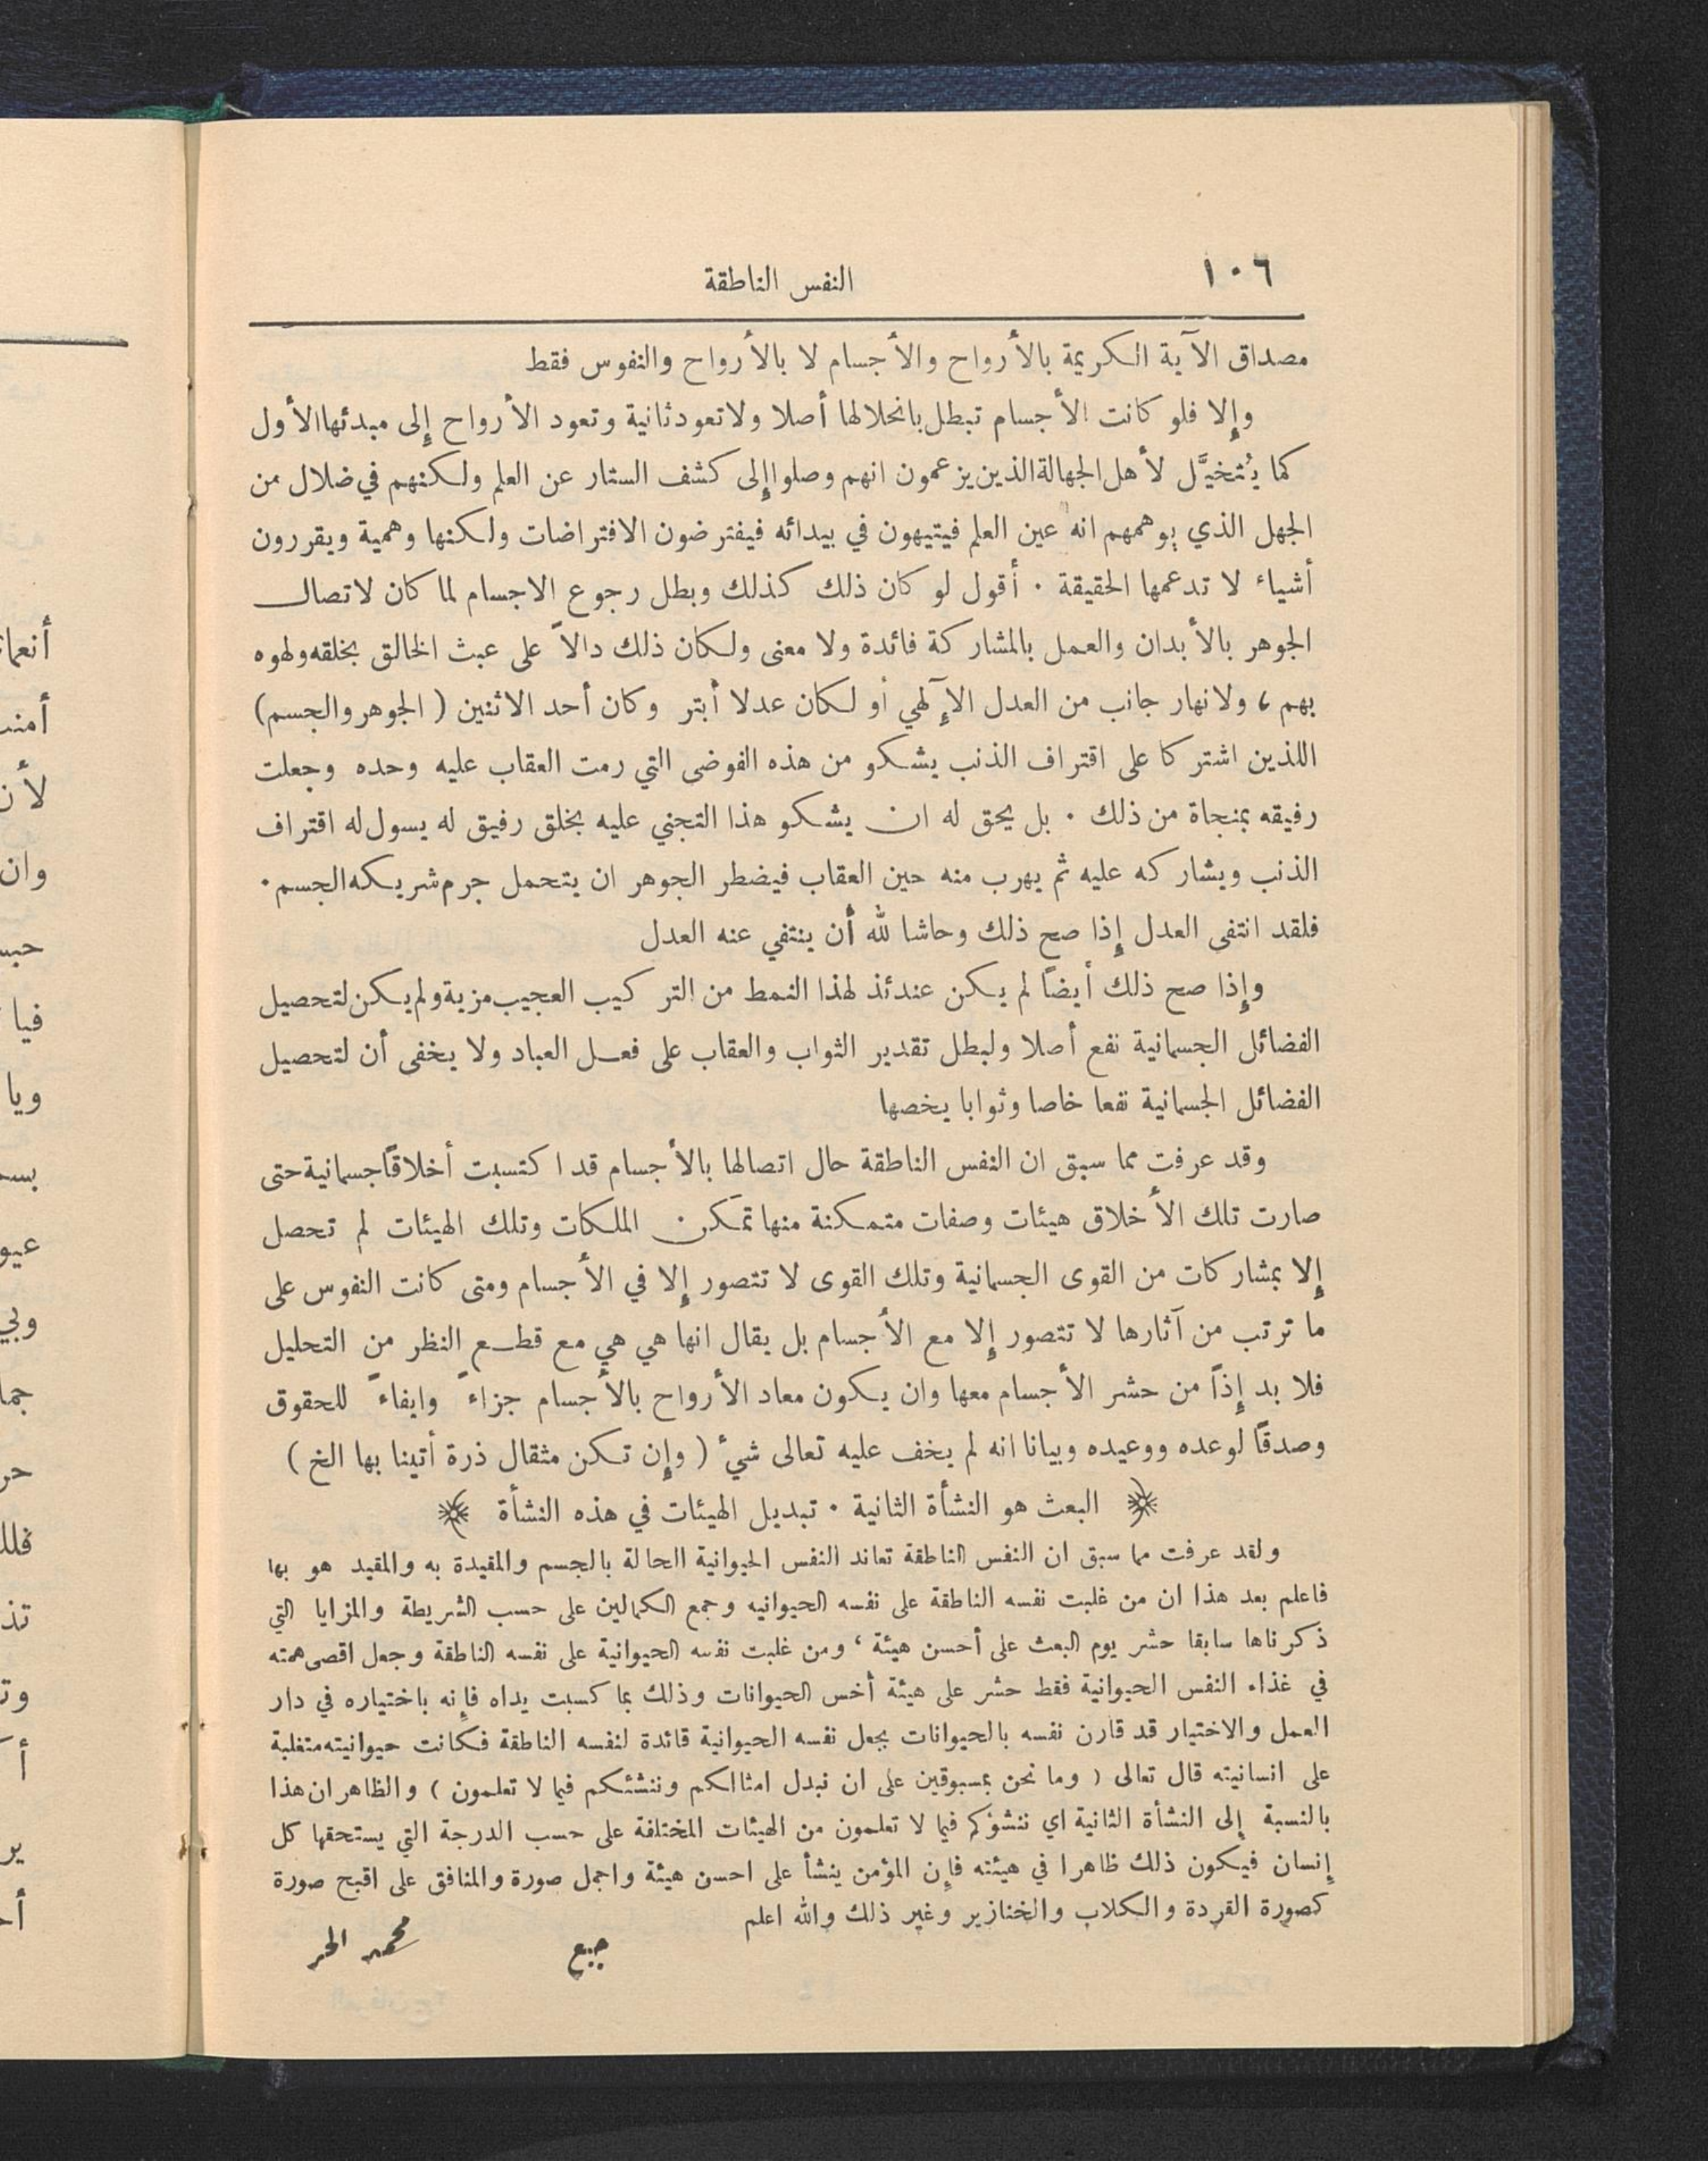 ١٠٦
النفس الناطقة
مصداق الآية الكريمة بالأرواح والأجسام لا بالأرواح والنفوس فقط
وإلا فلو كانت الأجسام تبطل بانحلالها أصلا ولا تعود ثانية وتعود الأرواح إلى مبدئها الأول
كما يُتخيَّل لأهل الجهالة الذين يزعمون انهم وصلوا إلى كشف الستار عن العلم ولكنهم في ضلال من
الجهل الذي يوهمهم انه عين العلم فيتيهون في بيدائه فيفترضون الافتراضات ولكنها وهمية ويقررون
أشياء لا تدعمها الحقيقة . أقول لو كان ذلك كذلك وبطل رجوع الاجسام لما كان لاتصال
الجوهر بالأبدان والعمل بالمشاركة فائدة ولا معنى ولكان ذلك دالاً على عبث الخالق بخلقه ولهوه
بهم ، ولانهار جانب من العدل الإلٓهي أو لكان عدلا أبتر وكان أحد الاثنين ( الجوهر والجسم )
اللذين اشتركا على اقتراف الذنب يشكو من هذه الفوضى التي رمت العقاب عليه وحده وجعلت
رفيقه بمنجاة من ذلك . بل يحق له ان يشكو هذا التجني عليه بخلق رفيق له يسول له اقتراف
الذنب ويشاركه عليه ثم يهرب منه حين العقاب فيضطر الجوهر ان يتحمل جرم شريكه الجسم .
فلقد انتفى العدل إذا صح ذلك وحاشا لله أن ينتفي عنه العدل
وإذا صح ذلك أيضاً لم يكن عندئذ لهذا النمط من التركيب العجيب مزية ولم يكن لتحصيل
الفضائل الجسمانية نفع أصلا ولبطل تقدير الثواب والعقاب على فعل العباد ولا يخفى أن لتحصيل
الفضائل الجسمانية نفعا خاصا وثوابا يخصها
وقد عرفت مما سبق ان النفس الناطقة حال اتصالها بالأجسام قد اكتسبت أخلاقاً جسمانية حتى
صارت تلك الأخلاق هيئات وصفات متمكنة منها تمكن الملكات وتلك الهيئات لم تحصل
إلا بمشاركات من القوى الجسمانية وتلك القوى لا تتصور إلا في الأجسام ومتى كانت النفوس على
ما ترتب من آثارها لا تتصور إلا مع الأجسام بل يقال انها هي هي مع قطع النظر من التحليل
فلا بد إذاً من حشر الأجسام معها وان يكون معاد الأرواح بالأجسام جزاءً وايفاءً للحقوق
وصدقاً لوعده ووعيده وبيانا انه لم يخف عليه تعالى شيءٌ ( وإن تكن مثقال ذرة أتينا بها الخ )
البعث هو النشأة الثانية . تبديل الهيئات في هذه النشأة
ولقد عرفت مما سبق ان النفس الناطقة تعاند النفس الحيوانية الحالة بالجسم والمقيدة به والمقيد هو بها
فاعلم بعد هذا ان من غلبت نفسه الناطقة على نفسه الحيوانيه وجمع الكمالين على حسب الشريطة والمزايا التي
ذكرناها سابقا حشر يوم البعث على أحسن هيئة ، ومن غلبت نفسه الحيوانية على نفسه الناطقة وجعل اقصى همته
في غذاء النفس الحيوانية فقط حشر على هيئة أخس الحيوانات وذلك بما كسبت يداه فإنه باختياره في دار
العمل والاختيار قد قارن نفسه بالحيوانات بجعل نفسه الحيوانية قائدة لنفسه الناطقة فكانت حيوانيته متغلبة
على انسانيته قال تعالى ( وما نحن بمسبوقين على ان نبدل امثالكم وننشئكم فيما لا تعلمون ) والظاهر ان هذا
بالنسبة إلى النشأة الثانية اي ننشؤكم فيما لا تعلمون من الهيئات المختلفة على حسب الدرجة التي يستحقها كل
إنسان فيكون ذلك ظاهرا في هيئته فإن المؤمن ينشأ على احسن هيئة واجمل صورة والمنافق على اقبح صورة
كصورة القردة والكلاب والخنازير وغير ذلك والله اعلم
جبع
محمد الحر